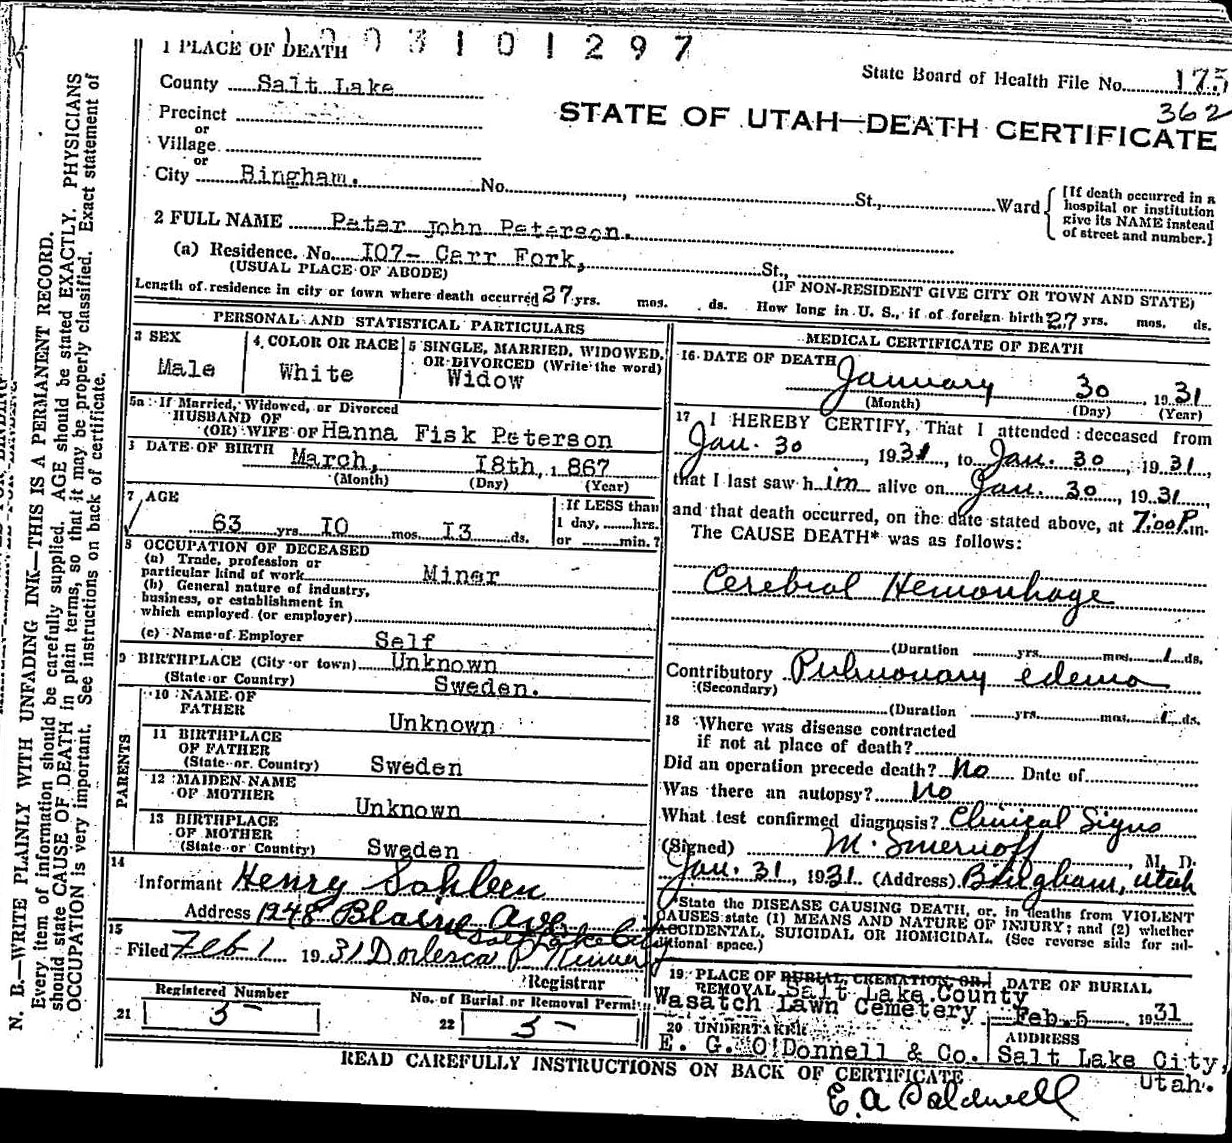 3 1 0 1 2 9 7
1 PLACE OF DEATH
State Board of Health File No. 175
362
County Salt Lake
STATE OF UTAH—DEATH CERTIFICATE
Precinct
or
Village
or
City Bingham. No. , St., Ward
[If death occurred in a hospital or institution give its NAME instead of street and number.]
2 FULL NAME Peter John Peterson.
(a) Residence. No. I07- Carr Fork, St.,
(USUAL PLACE OF ABODE) (IF NON-RESIDENT GIVE CITY OR TOWN AND STATE)
Length of residence in city or town where death occurred 27 yrs. mos. ds. How long in U. S., if of foreign birth 27 yrs. mos. ds.
PERSONAL AND STATISTICAL PARTICULARS
3 SEX
Male
4 COLOR OR RACE
White
5 SINGLE, MARRIED, WIDOWED,
OR DIVORCED (Write the word)
Widow
5a If Married, Widowed, or Divorced
HUSBAND OF
(OR) WIFE OF Hanna Fisk Peterson
DATE OF BIRTH March, I8th, 1867
(Month) (Day) (Year)
7 AGE
63 yrs. I0 mos. I3 ds.
If LESS than
1 day, hrs.
or min.?
8 OCCUPATION OF DECEASED
(a) Trade, profession or
particular kind of work Miner
(b) General nature of industry,
business, or establishment in
which employed (or employer)
(c) Name of Employer Self
9 BIRTHPLACE (City or town) Unknown
(State or Country) Sweden.
PARENTS
10 NAME OF
FATHER Unknown
11 BIRTHPLACE
OF FATHER
(State or Country) Sweden
12 MAIDEN NAME
OF MOTHER Unknown
13 BIRTHPLACE
OF MOTHER
(State or Country) Sweden
14
Informant Henry Sohleen
Address 1948 Blaine Ave
Salt Lake City
15
Filed Feb 1 1931
Registrar
Registered Number
21 3-
No. of Burial or Removal Permit
22 3-
MEDICAL CERTIFICATE OF DEATH
16 DATE OF DEATH January 30 1931
(Month) (Day) (Year)
17 I HEREBY CERTIFY, That I attended deceased from
Jan. 30, 1931, to Jan. 30, 1931,
that I last saw him alive on Jan. 30, 1931,
and that death occurred, on the date stated above, at 7:00 P.m.
The CAUSE DEATH* was as follows:
Cerebral Hemorrhage
(Duration yrs. mos. 1 ds.
Contributory Pulmonary edema
(Secondary)
(Duration yrs. mos. 1 ds.
18 Where was disease contracted
if not at place of death?
Did an operation precede death? No Date of
Was there an autopsy? No
What test confirmed diagnosis? Clinical Signs
(Signed) M. Smernoff, M. D.
Jan. 31, 1931. (Address) Bingham, Utah
*State the DISEASE CAUSING DEATH, or, in deaths from VIOLENT
CAUSES state (1) MEANS AND NATURE OF INJURY; and (2) whether
ACCIDENTAL, SUICIDAL OR HOMICIDAL. (See reverse side for ad-
ditional space.)
19 PLACE OF BURIAL CREMATION OR
REMOVAL Salt Lake County
Wasatch Lawn Cemetery
DATE OF BURIAL
Feb 5 1931
20 UNDERTAKER
E. G. O'Donnell & Co.
ADDRESS
Salt Lake City,
Utah.
READ CAREFULLY INSTRUCTIONS ON BACK OF CERTIFICATE
E. A. Caldwell
N. B.—WRITE PLAINLY WITH UNFADING INK—THIS IS A PERMANENT RECORD.
Every item of information should be carefully supplied. AGE should be stated EXACTLY. PHYSICIANS
should state CAUSE OF DEATH in plain terms, so that it may be properly classified. Exact statement of
OCCUPATION is very important. See instructions on back of certificate.